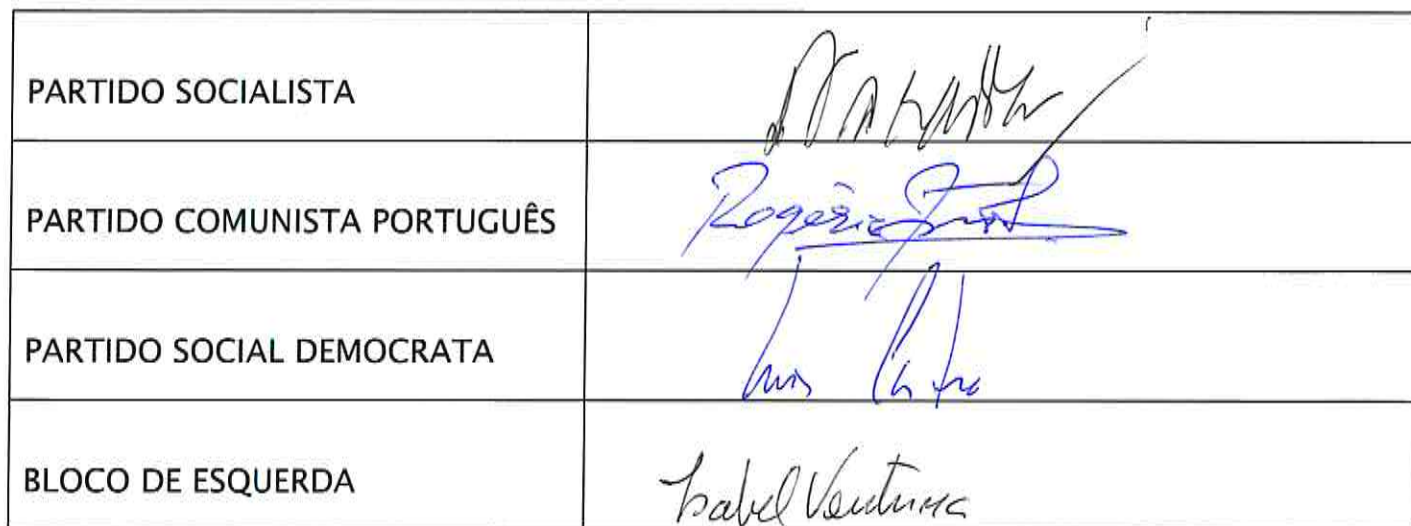 PARTIDO SOCIALISTA
PARTIDO COMUNISTA PORTUGUÊS
Rogério
PARTIDO SOCIAL DEMOCRATA
Luis
BLOCO DE ESQUERDA
Isabel Ventura